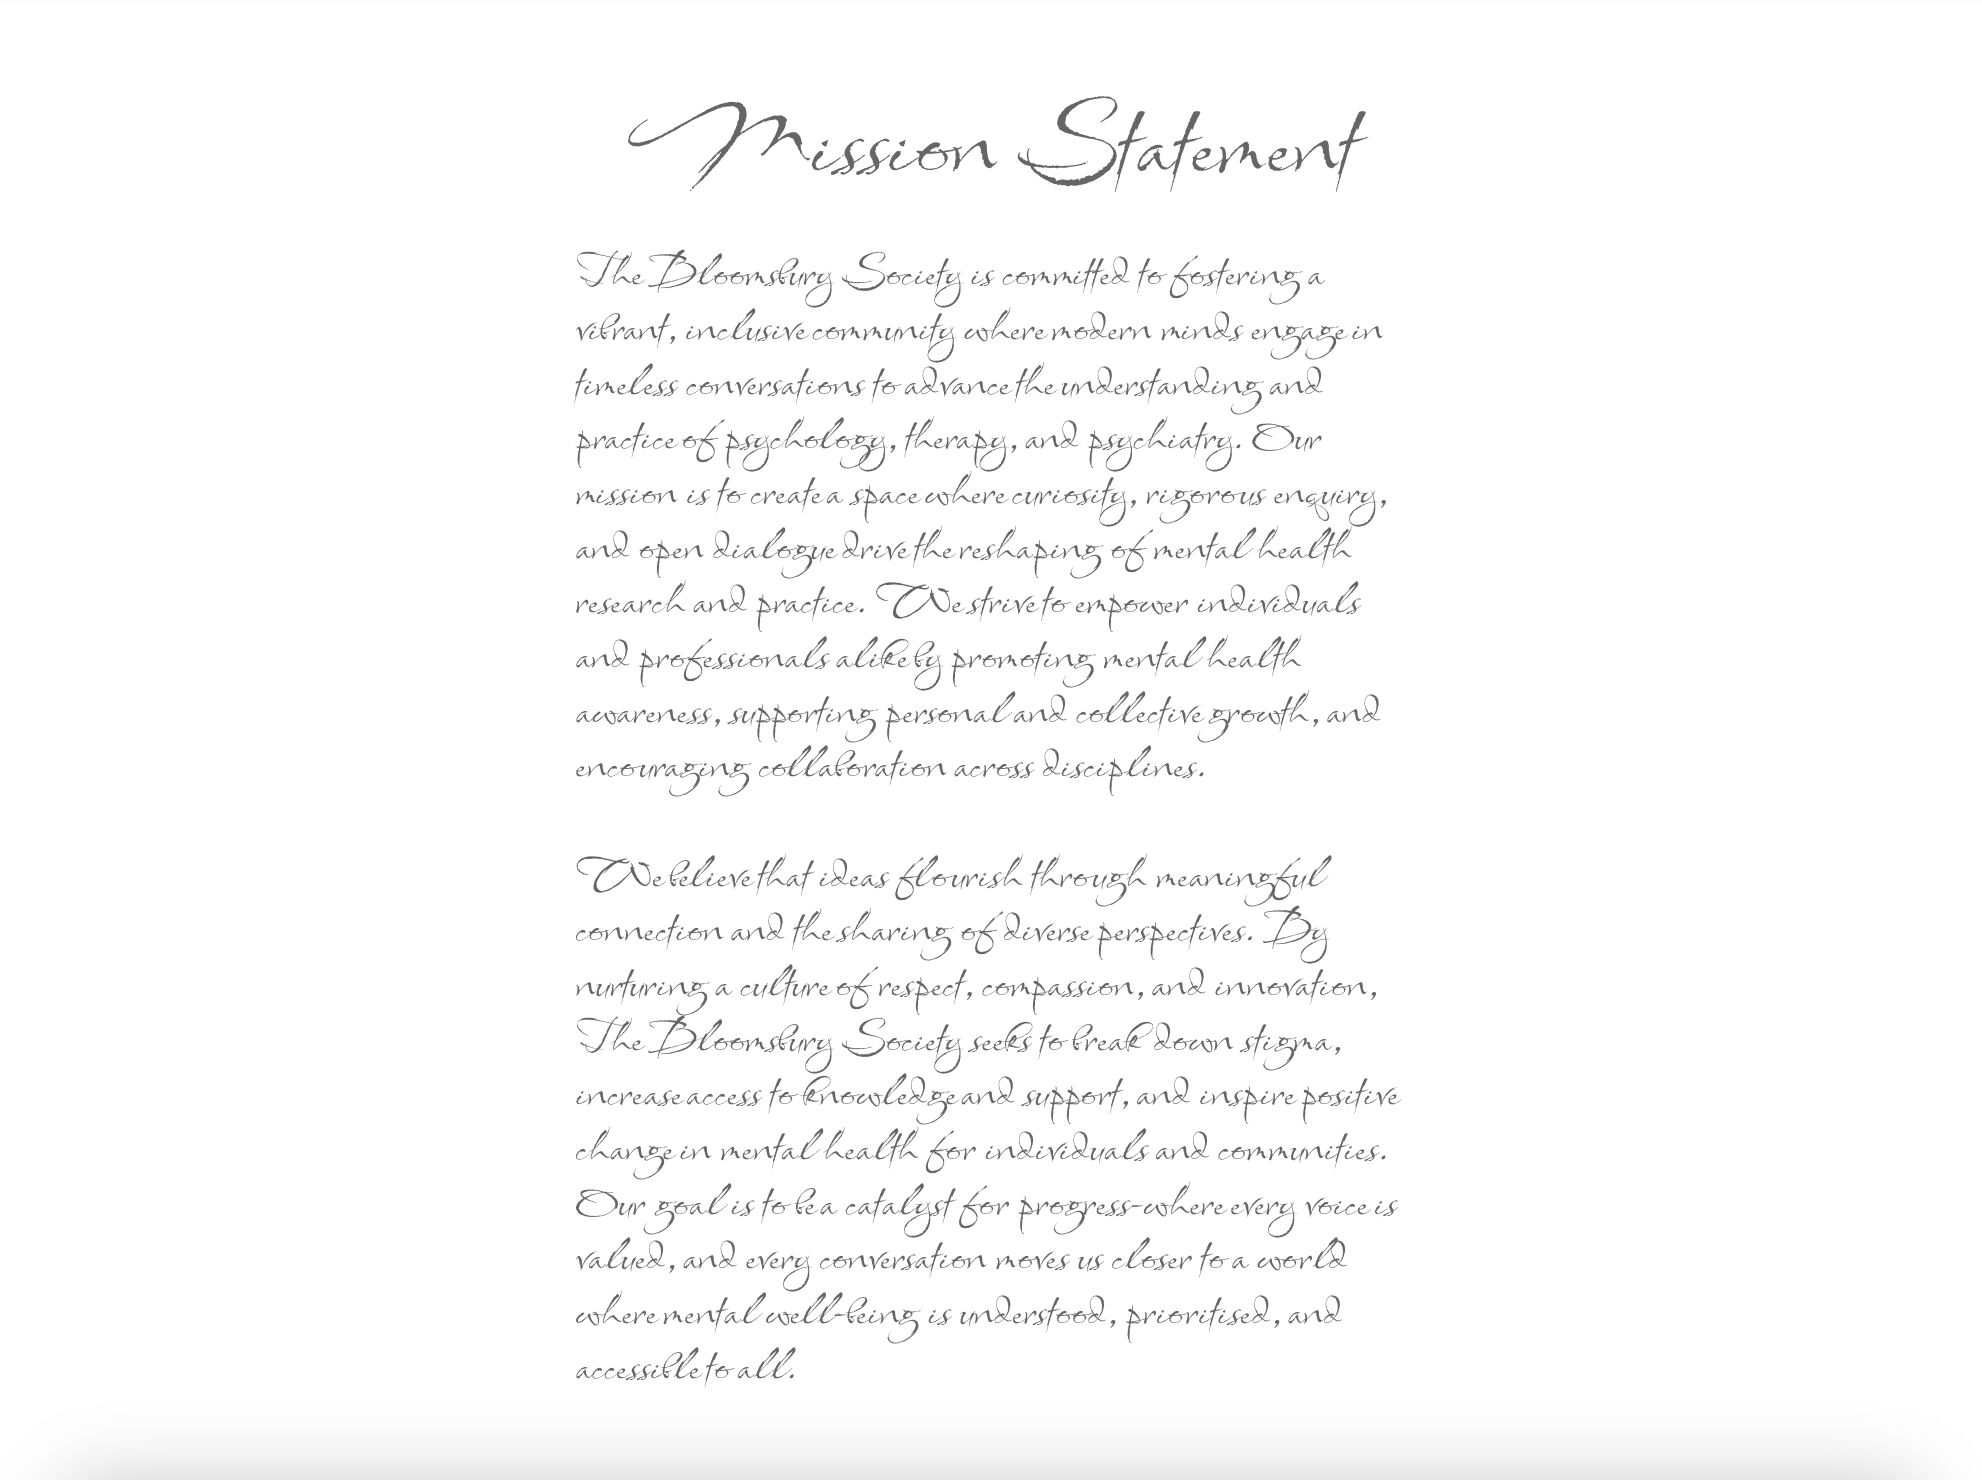 Mission Statement
The Bloomsbury Society is committed to fostering a
vibrant, inclusive community where modern minds engage in
timeless conversations to advance the understanding and
practice of psychology, therapy, and psychiatry. Our
mission is to create a space where curiosity, rigorous enquiry,
and open dialogue drive the reshaping of mental health
research and practice. We strive to empower individuals
and professionals alike by promoting mental health
awareness, supporting personal and collective growth, and
encouraging collaboration across disciplines.
We believe that ideas flourish through meaningful
connection and the sharing of diverse perspectives. By
nurturing a culture of respect, compassion, and innovation,
The Bloomsbury Society seeks to break down stigma,
increase access to knowledge and support, and inspire positive
change in mental health for individuals and communities.
Our goal is to be a catalyst for progress-where every voice is
valued, and every conversation moves us closer to a world
where mental well-being is understood, prioritised, and
accessible to all.